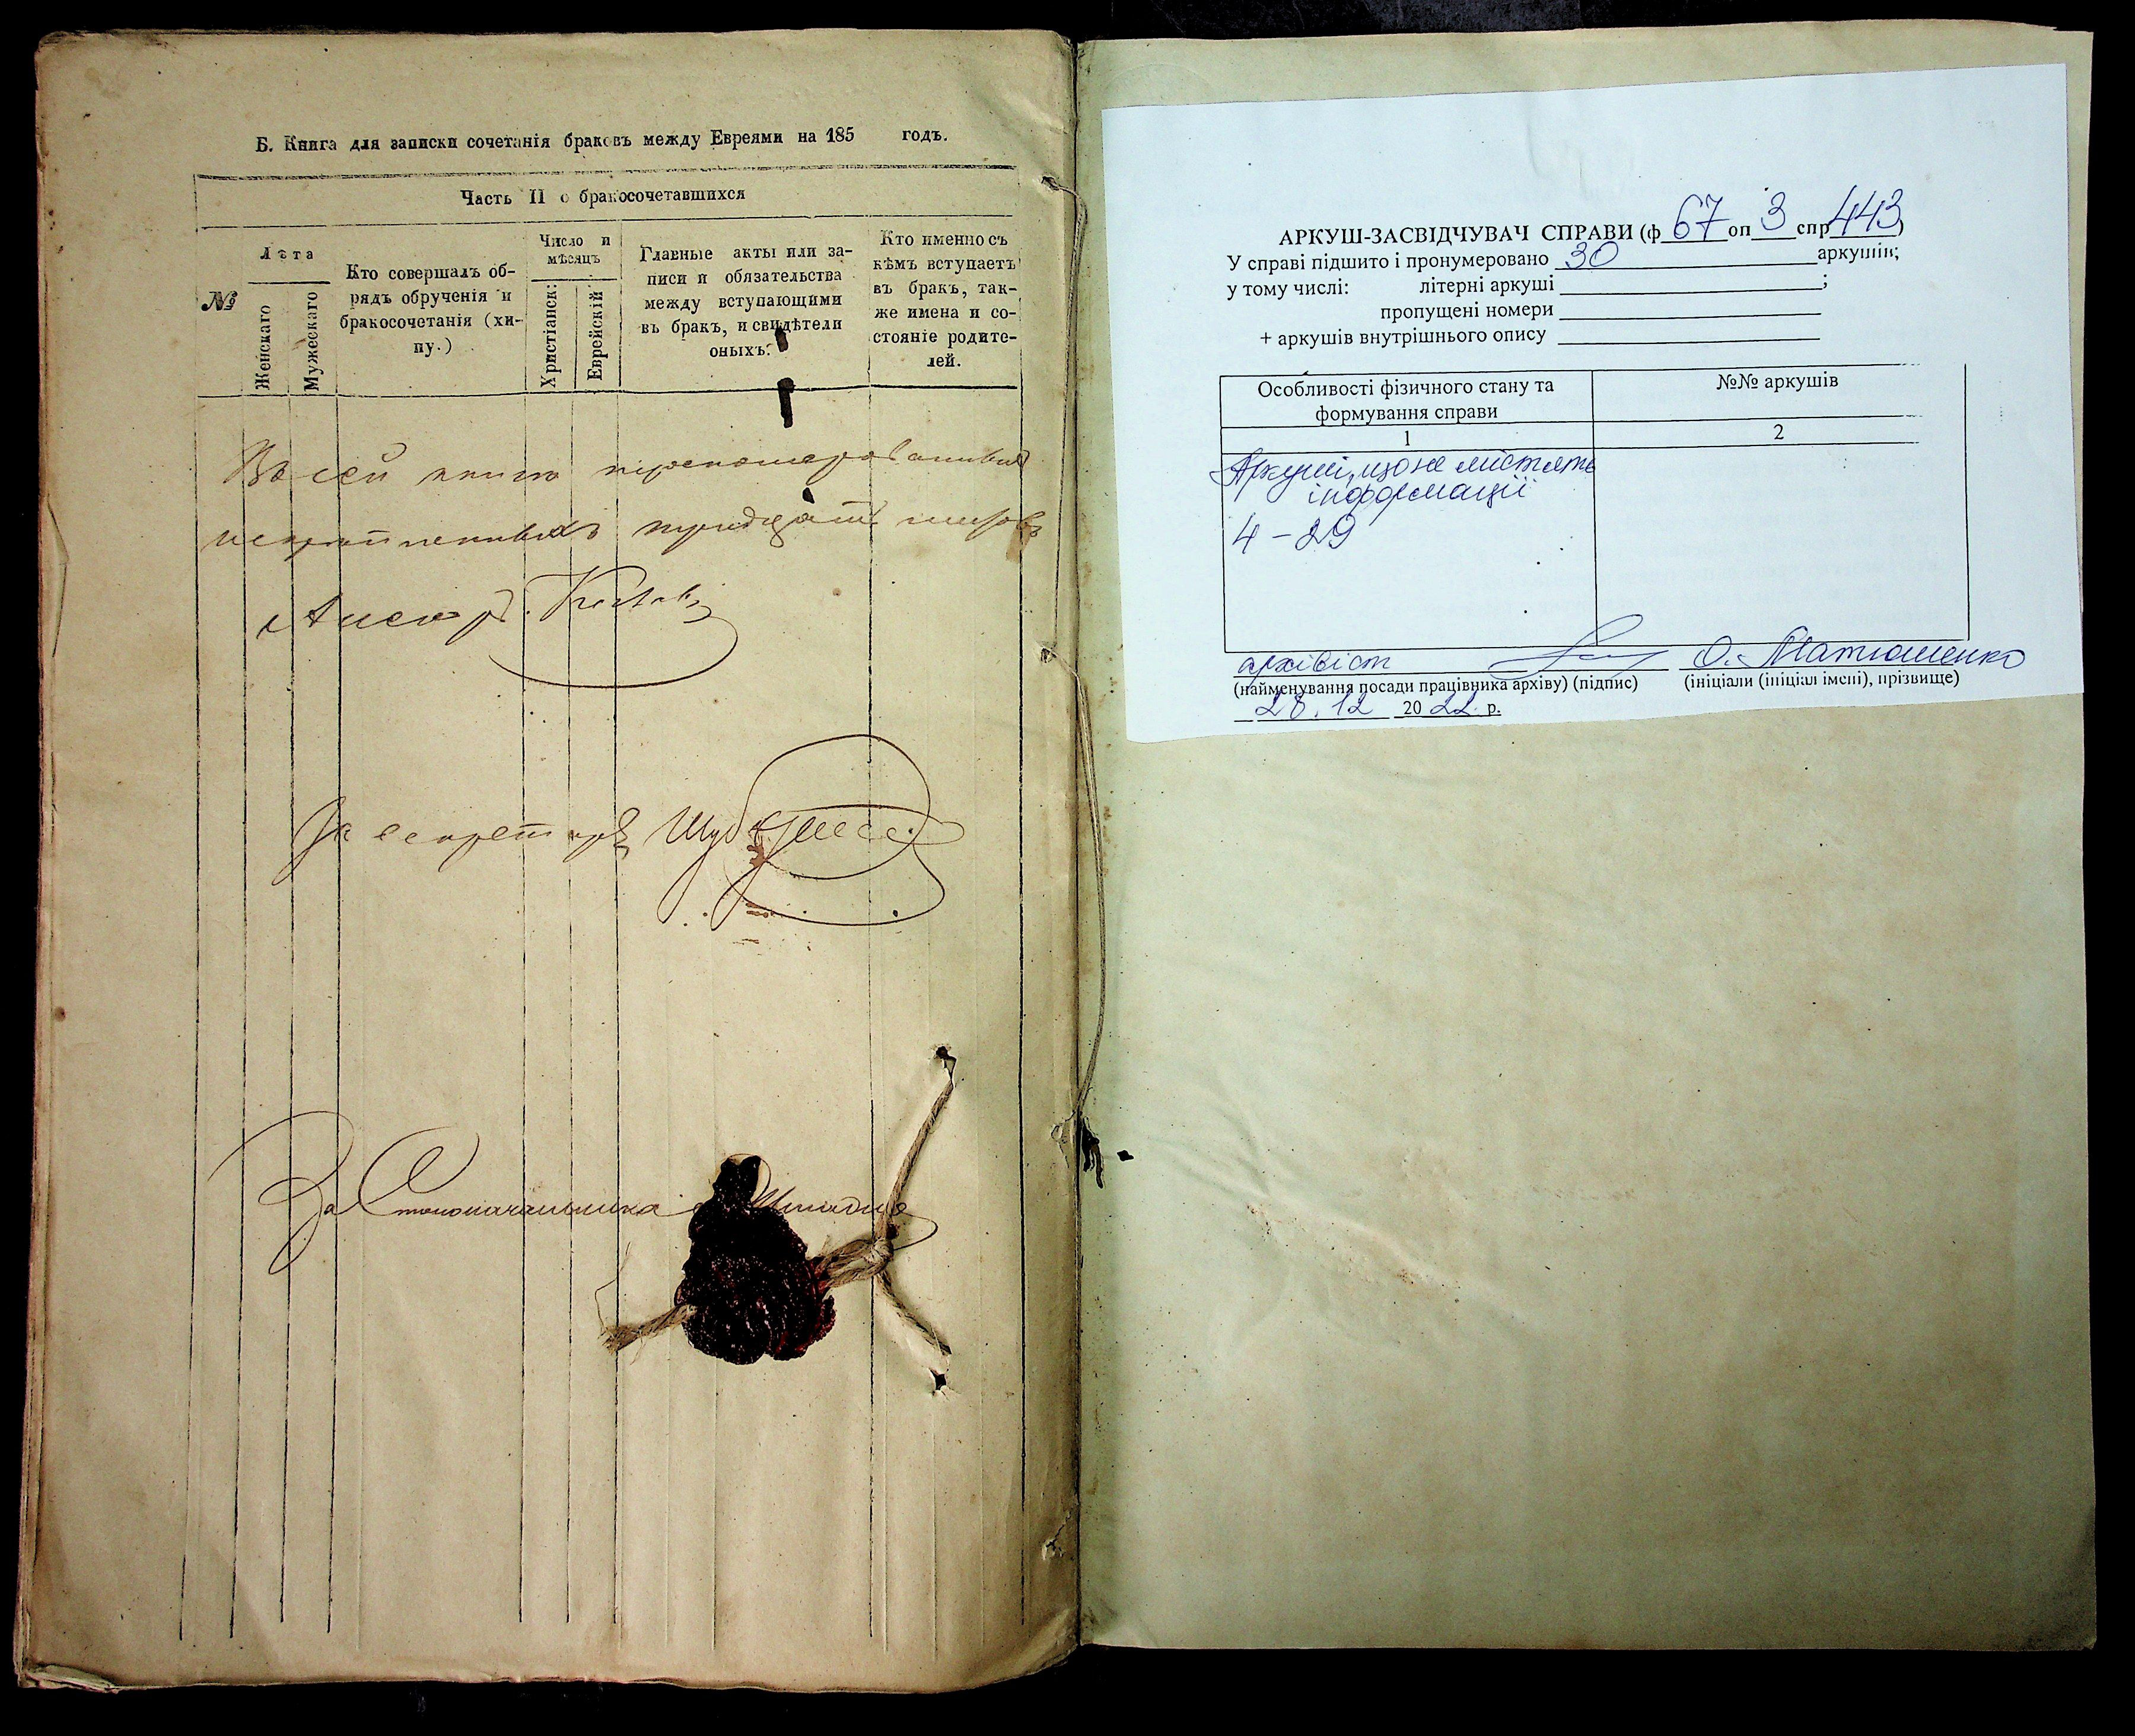 Б. Книга для записки сочетанія браковъ между Евреями на 185 годъ.
Часть II о бракосочетавшихся
№
Лѣта
Женскаго
Мужескаго
Кто совершалъ об-
рядъ обрученія и
бракосочетанія (хи-
пу.)
Число и
мѣсяцъ
Христіанск:
Еврейскій
Главные акты или за-
писи и обязательства
между вступающими
въ бракъ, и свидѣтели
оныхъ.
Кто именно съ
кѣмъ вступаетъ
въ бракъ, так-
же имена и со-
стояніе родите-
лей.
Въ сей книгѣ пронумерованныхъ
и скрѣпленныхъ тридцать листовъ
За секретаря
За Столоначальника
АРКУШ-ЗАСВІДЧУВАЧ СПРАВИ (ф 67 оп 3 спр 443)
У справі підшито і пронумеровано 30 аркушів;
у тому числі: літерні аркуші ;
пропущені номери
+ аркушів внутрішнього опису
Особливості фізичного стану та
формування справи
№№ аркушів
1
2
Аркуші, що не містять
інформації
4 – 29
архівіст О. Матюшенко
(найменування посади працівника архіву) (підпис) (ініціали (ініціал імені), прізвище)
28.12 2022 р.